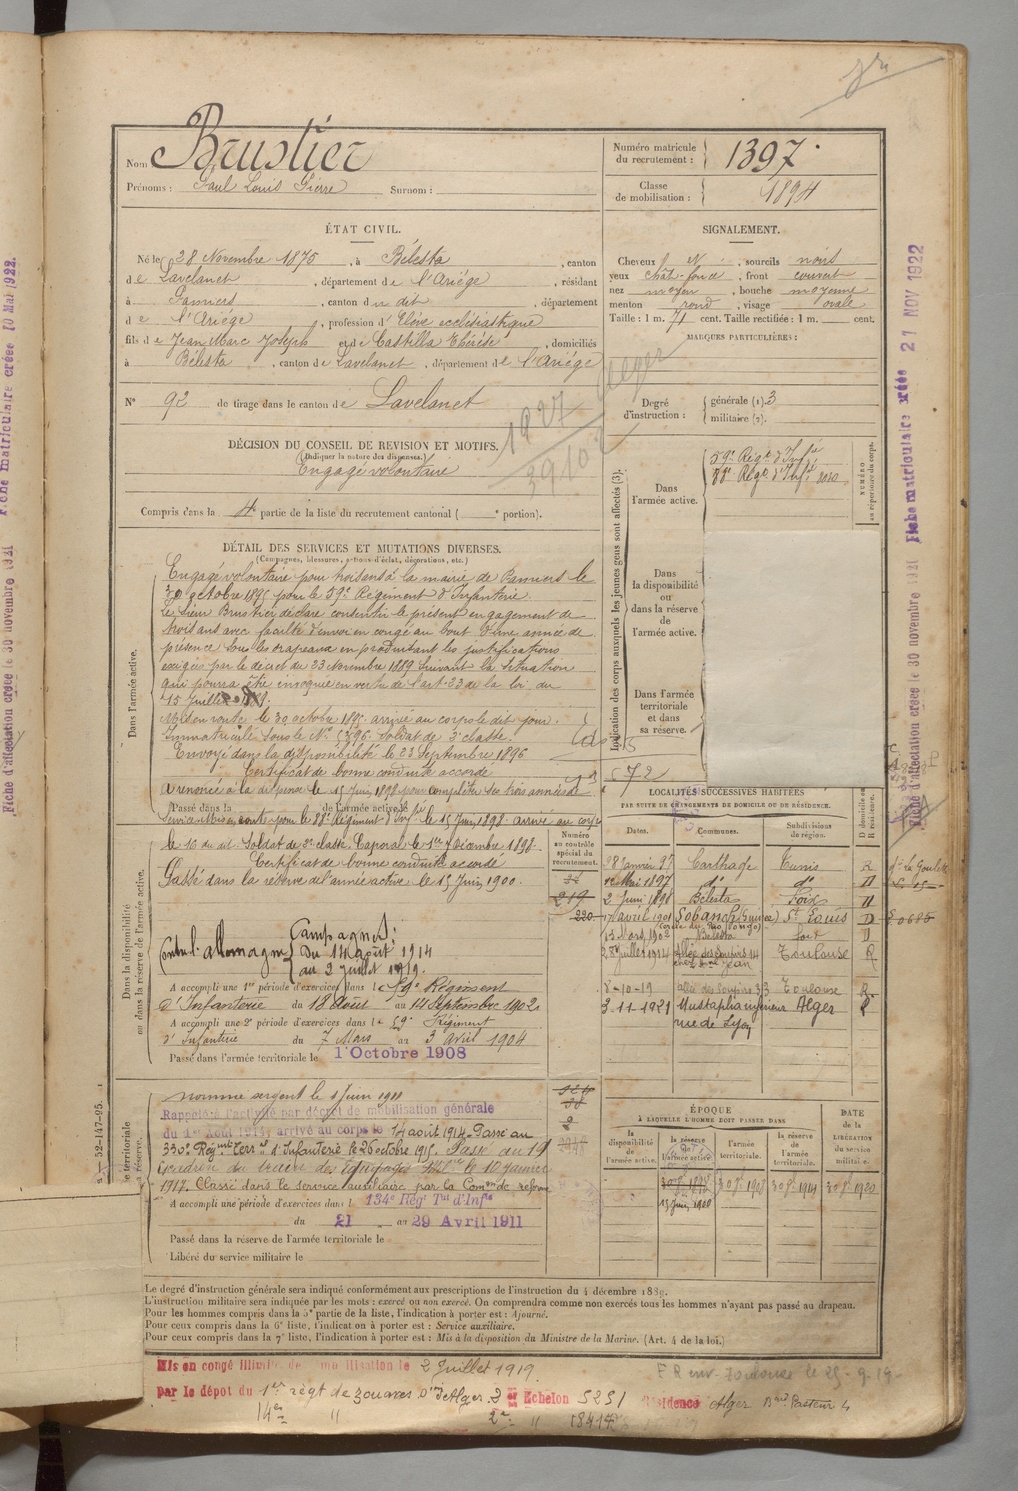 Nom Brustier
Prénoms : Paul Louis Pierre Surnom :
Numéro matricule du recrutement : 1397
Classe de mobilisation : 1894
ÉTAT CIVIL.
Né le 28 Novembre 1875, à Bélesta, canton
de Lavelanet, département de l'Ariége, résidant
à Pamiers, canton du dit, département
de l'Ariége, profession d'Elève ecclésiastique
fils de Jean Marc Joseph et de Castilla Thérèse, domiciliés
à Bélesta, canton de Lavelanet, département de l'Ariége
N° 92 de tirage dans le canton de Lavelanet
SIGNALEMENT.
Cheveux N, sourcils noirs
yeux chât-foncé, front couvert
nez moyen, bouche moyenne
menton rond, visage ovale
Taille : 1 m. 71 cent. Taille rectifiée : 1 m. cent.
MARQUES PARTICULIÈRES :
Degré d'instruction : générale (1). 3
militaire (2).
DÉCISION DU CONSEIL DE REVISION ET MOTIFS.
(Indiquer la nature des dispenses.)
Engagé volontaire
Compris dans la 4e partie de la liste du recrutement cantonal ( e portion).
1927
Alger
Indication des corps auxquels les jeunes gens sont affectés (3).
NUMÉRO au répertoire du corps.
Dans l'armée active.
59e Régt d'Infie
88e Régt d'Infie
Dans la disponibilité ou dans la réserve de l'armée active.
Dans l'armée territoriale et dans sa réserve.
DÉTAIL DES SERVICES ET MUTATIONS DIVERSES.
(Campagnes, blessures, actions d'éclat, décorations, etc.)
Dans l'armée active.
Engagé volontaire pour trois ans à la mairie de Pamiers le
30 octobre 1895 pour le 59e Régiment d'Infanterie.
Le sieur Brustier déclare consentir le présent engagement de
trois ans avec faculté d'envoi en congé au bout d'une année de
présence sous les drapeaux en produisant les justifications
exigées par le décret du 23 Novembre 1889 suivant la situation
qui pourra être invoquée en vertu de l'art. 23 de la loi du
15 Juillet 1889.
Mis en route le 30 octobre 1895 arrivé au corps le dit jour.
Immatriculé sous le No 5396. Soldat de 2e classe.
Envoyé dans la disponibilité le 23 Septembre 1896
Certificat de bonne conduite accordé
A renoncé à la dispense le 15 Juin 1898 pour compléter ses trois années de
Passé dans la de l'armée active le
service. Mis en route pour le 88e Régiment d'Infie le 15 Juin 1898. arrivé au corps
le 16 du dit. Soldat de 2e classe. Caporal le 1er Décembre 1898.
Certificat de bonne conduite accordé
Passé dans la réserve de l'armée active le 15 Juin 1900.
Dans la disponibilité ou dans la réserve de l'armée active.
Numéro au contrôle spécial du recrutement.
219
220
Contre l'Allemagne
Campagnes :
du 14 août 1914
au 2 juillet 1919.
A accompli une 1re période d'exercices dans le 59e Régiment
d'Infanterie du 18 Août au 14 Septembre 1902
A accompli une 2e période d'exercices dans le 59e Régiment
d'Infanterie du 7 Mars au 3 Avril 1904
Passé dans l'armée territoriale le 1er Octobre 1908
nommé sergent le 1 Juin 1911
Rappelé à l'activité par décret de mobilisation générale
du 1er Août 1914, arrivé au corps le 14 août 1914. Passé au
330e Régiment Terral d'Infanterie le 26 octobre 1915. Passé au 19e
Escadron du train des Equipages Milres le 10 janvier
1917. Classé dans le service auxiliaire par la Comon de réforme
A accompli une période d'exercices dans le 134e Régt Tal d'Infie
du 21 au 29 Avril 1911
Passé dans la réserve de l'armée territoriale le
Libéré du service militaire le
572
LOCALITÉS SUCCESSIVES HABITÉES
PAR SUITE DE CHANGEMENTS DE DOMICILE OU DE RÉSIDENCE.
Dates. Communes. Subdivisions de région. D domicile ou R résidence.
28 Janvier 97 Carthage Tunis R
Mai 1897 do do
2 Juin 1898 Bélesta Foix
17 Avril 1901 St Louis D
13 Mars 1902 Bélesta Foix
28 Juillet 1914 Toulouse R
8-10-19 allée des soupirs 33 Toulouse R
3-11-1921 Mustapha inférieur Alger R
rue de Lyon
ÉPOQUE
À LAQUELLE L'HOMME DOIT PASSER DANS
la disponibilité de l'armée active. la réserve de l'armée active. l'armée territoriale. la réserve de l'armée territoriale.
DATE DE LA LIBÉRATION du service militaire.
30 8bre 1898 30 8bre 1908 30 8bre 1914 30 8bre 1920
15 Juin 1900
Le degré d'instruction générale sera indiqué conformément aux prescriptions de l'instruction du 4 décembre 1889.
L'instruction militaire sera indiquée par les mots : exercé ou non exercé. On comprendra comme non exercés tous les hommes n'ayant pas passé au drapeau.
Pour les hommes compris dans la 5e partie de la liste, l'indication à porter est : Ajourné.
Pour ceux compris dans la 6e liste, l'indication à porter est : Service auxiliaire.
Pour ceux compris dans la 7e liste, l'indication à porter est : Mis à la disposition du Ministre de la Marine. (Art. 4 de la loi.)
Mis en congé illimité de démobilisation le 2 Juillet 1919.
par le dépôt du 1er régt de zouaves Don d'Alger 2e Echelon 5251 Résidence Alger Bard Pasteur 4
F R env. Toulouse le 25-9-19-
Fiche d'affectation créée le 30 novembre 1921 Fiche matriculaire créée 10 Mai 1922.
Fiche d'affectation créée le 30 novembre 1921 Fiche matriculaire créée 27 NOV 1922
52-147-95.